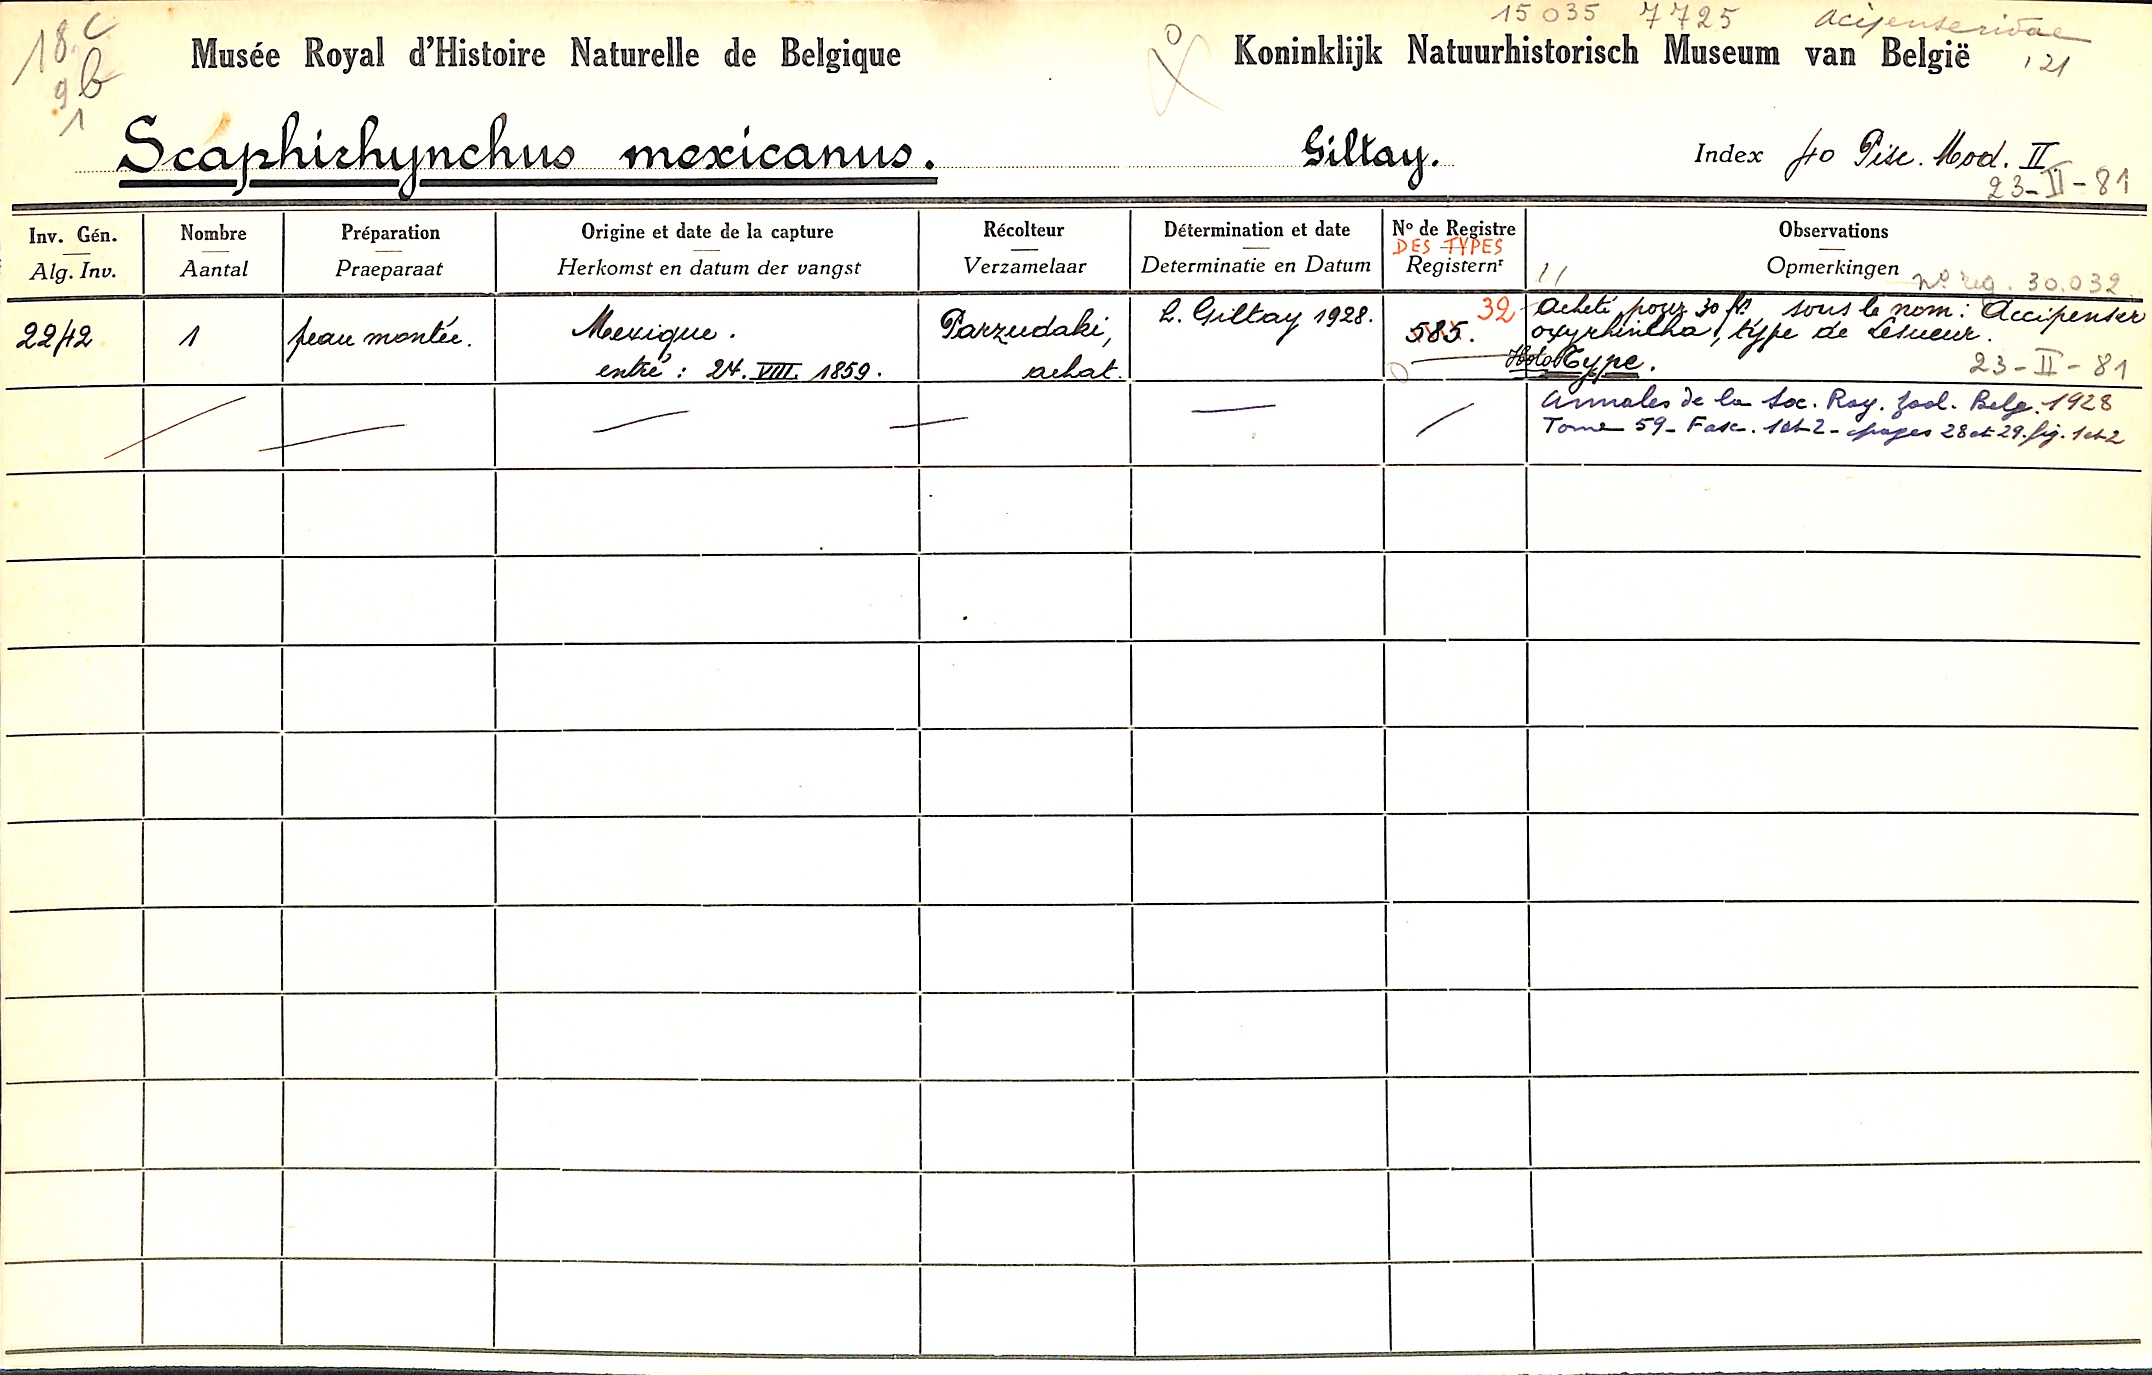 15035 7725 Acipenseridae
18 c
9 b
1
Musée Royal d'Histoire Naturelle de Belgique
Koninklijk Natuurhistorisch Museum van België
121
Scaphirhynchus mexicanus. Giltay.
Index fo Pisc. Mod. II
23-II-81
Inv. Gén. Nombre Préparation Origine et date de la capture Récolteur Détermination et date No de Registre Observations
DES TYPES
Alg. Inv. Aantal Praeparaat Herkomst en datum der vangst Verzamelaar Determinatie en Datum Registernr Opmerkingen
No reg. 30.032
2242 1 peau montée. Mexique. Parzudaki, L. Giltay 1928. 32 Acheté pour 30 fr. sous le nom: Accipenser
entré: 24.VIII.1859. achat. 585. oxyrhincha, type de Lesueur.
HoloType. 23-II-81
Annales de la Soc. Roy. Zool. Belg. 1928
Tome 59 - Fasc. 1et2 - pages 28 et 29. fig. 1et2